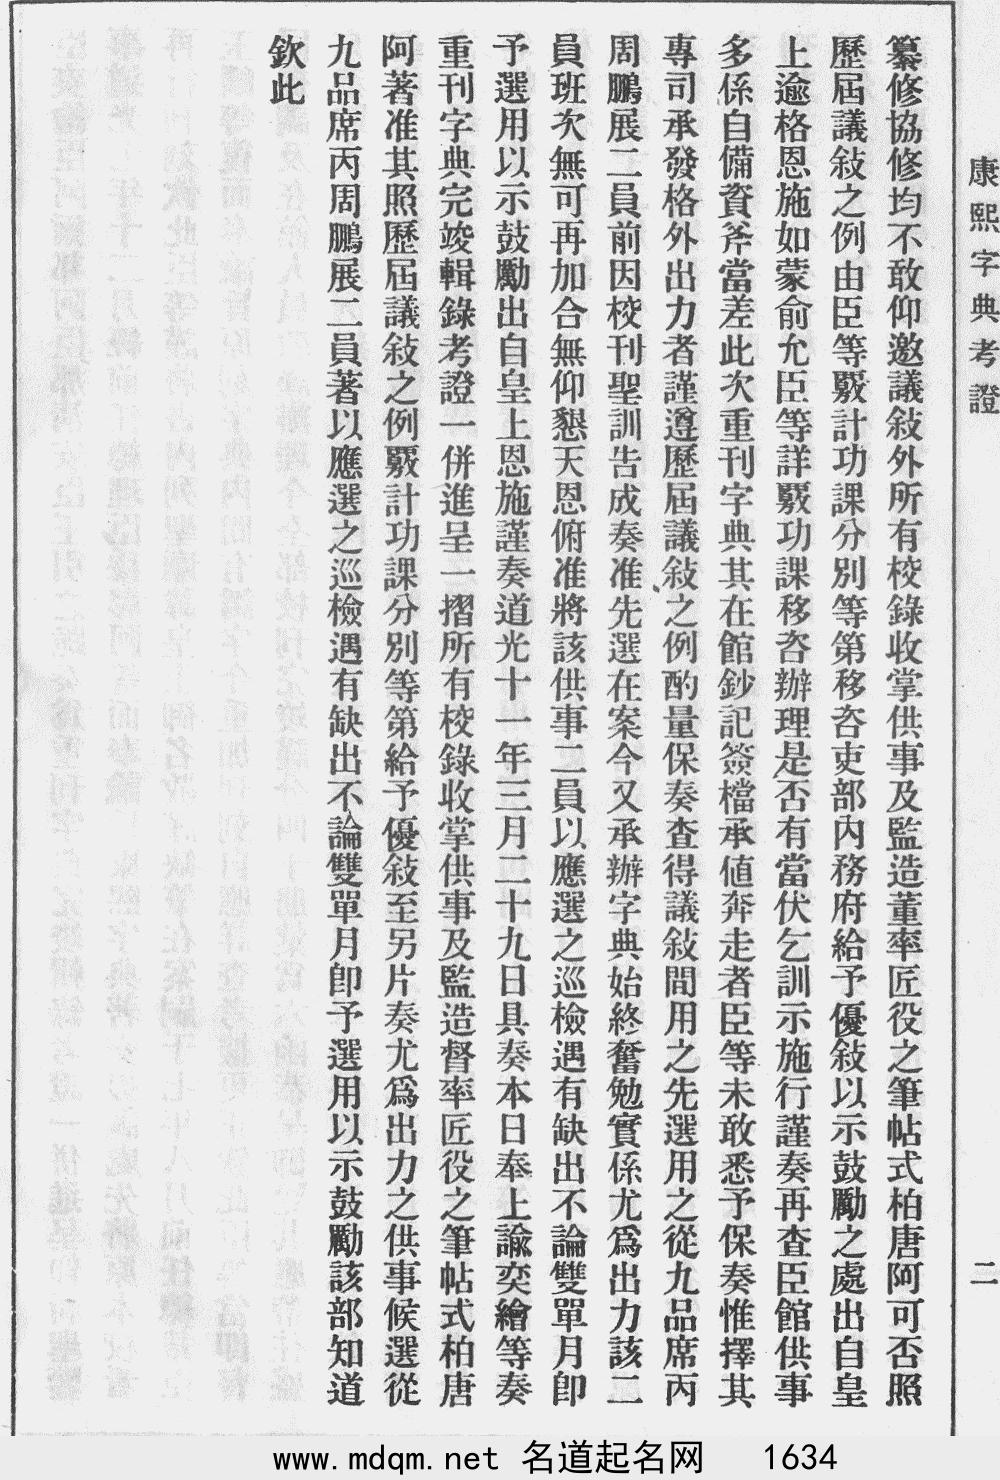 康熙字典考證
二
纂修協修均不敢仰邀議敍外所有校錄收掌供事及監造董率匠役之筆帖式柏唐阿可否照
歷屆議敍之例由臣等覈計功課分別等第移咨吏部內務府給予優敍以示鼓勵之處出自皇
上逾格恩施如蒙俞允臣等詳覈功課移咨辦理是否有當伏乞訓示施行謹奏再查臣館供事
多係自備資斧當差此次重刊字典其在館鈔記簽檔承値奔走者臣等未敢悉予保奏惟擇其
專司承發格外出力者謹遵歷屆議敍之例酌量保奏查得議敍間用之先選用之從九品席丙
周鵬展二員前因校刊聖訓告成奏准先選在案今又承辦字典始終奮勉實係尤爲出力該二
員班次無可再加合無仰懇天恩俯准將該供事二員以應選之巡檢遇有缺出不論雙單月卽
予選用以示鼓勵出自皇上恩施謹奏道光十一年三月二十九日具奏本日奉上諭奕繪等奏
重刊字典完竣輯錄考證一併進呈一摺所有校錄收掌供事及監造督率匠役之筆帖式柏唐
阿著准其照歷屆議敍之例覈計功課分別等第給予優敍至另片奏尤爲出力之供事候選從
九品席丙周鵬展二員著以應選之巡檢遇有缺出不論雙單月卽予選用以示鼓勵該部知道
欽此
www.mdqm.net 名道起名网 1634